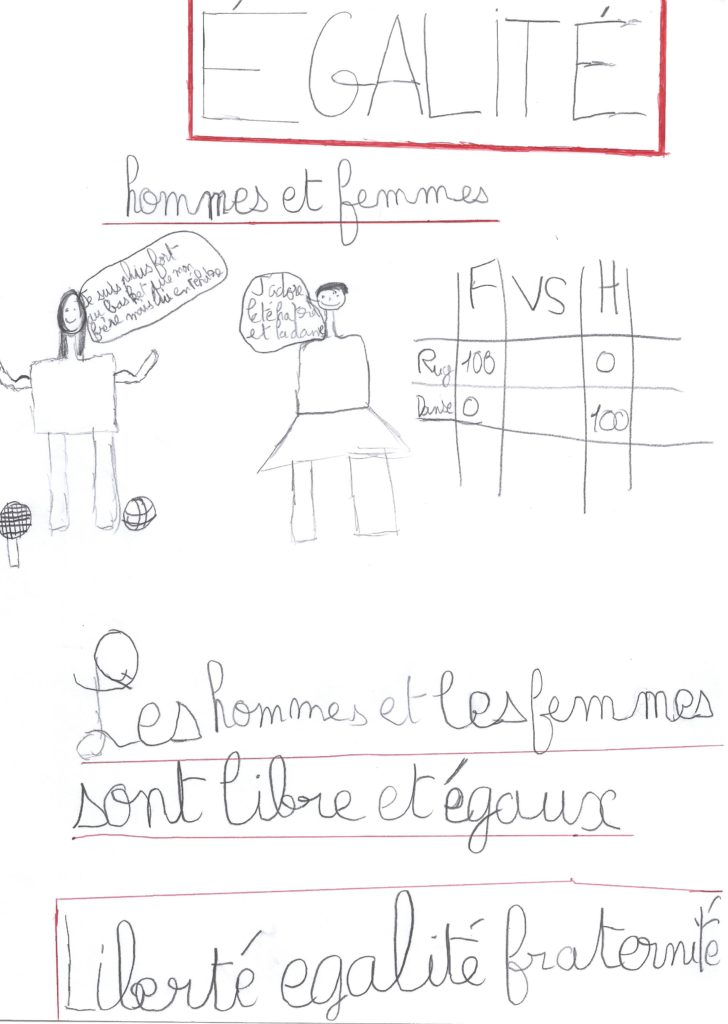 ÉGALITÉ
hommes et femmes
Je suis plus fort
au basket que mon
frère mais lui en
J'adore
le téâtre
et la danse
F VS H
Rug 100 0
Danse 0 100
Les hommes et les femmes
sont libre et égaux
Liberté egalité fraternité